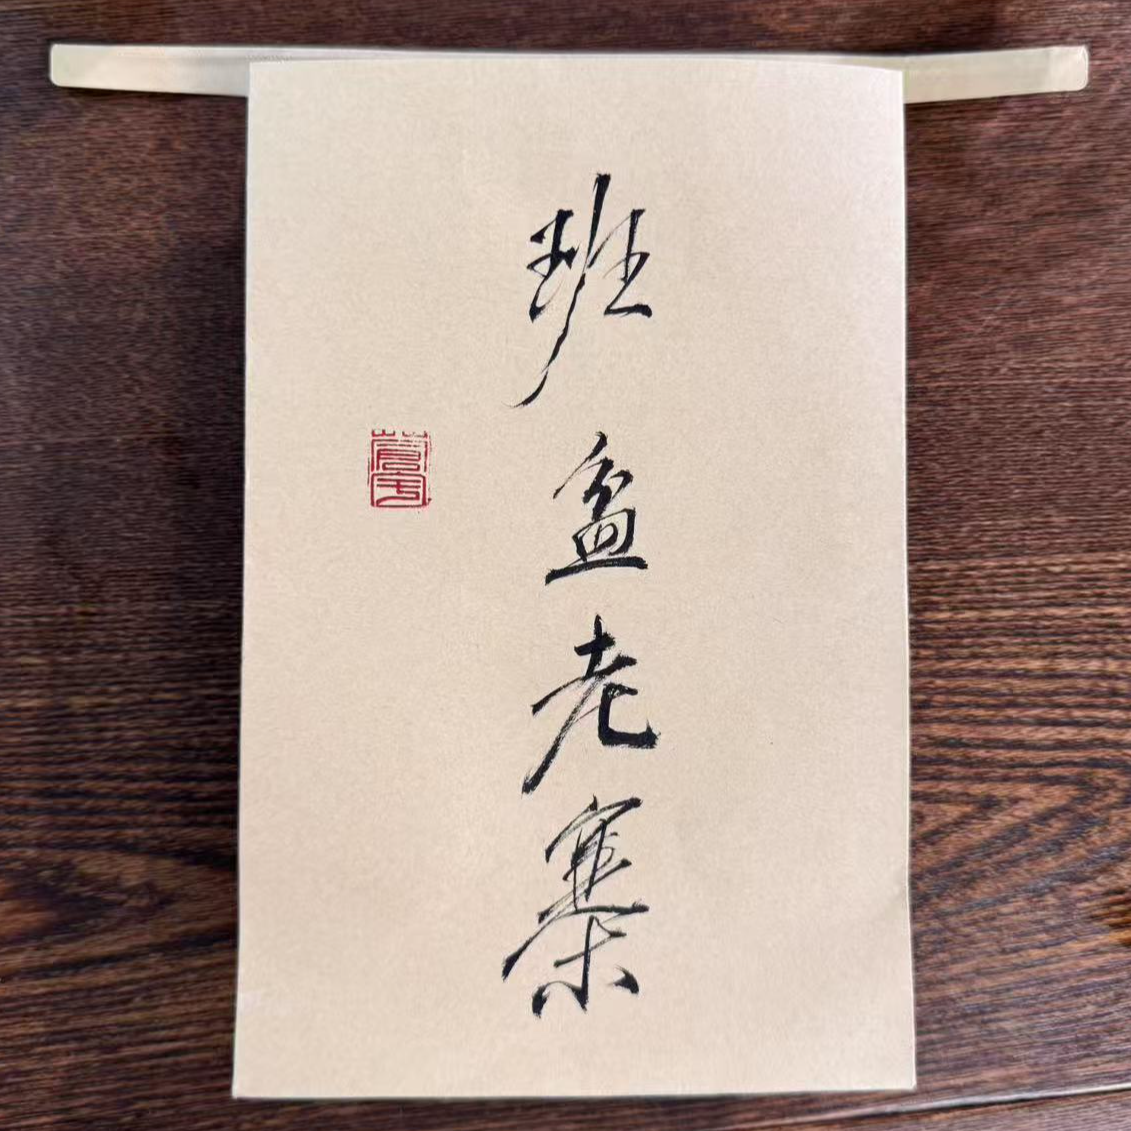 班盆老寨